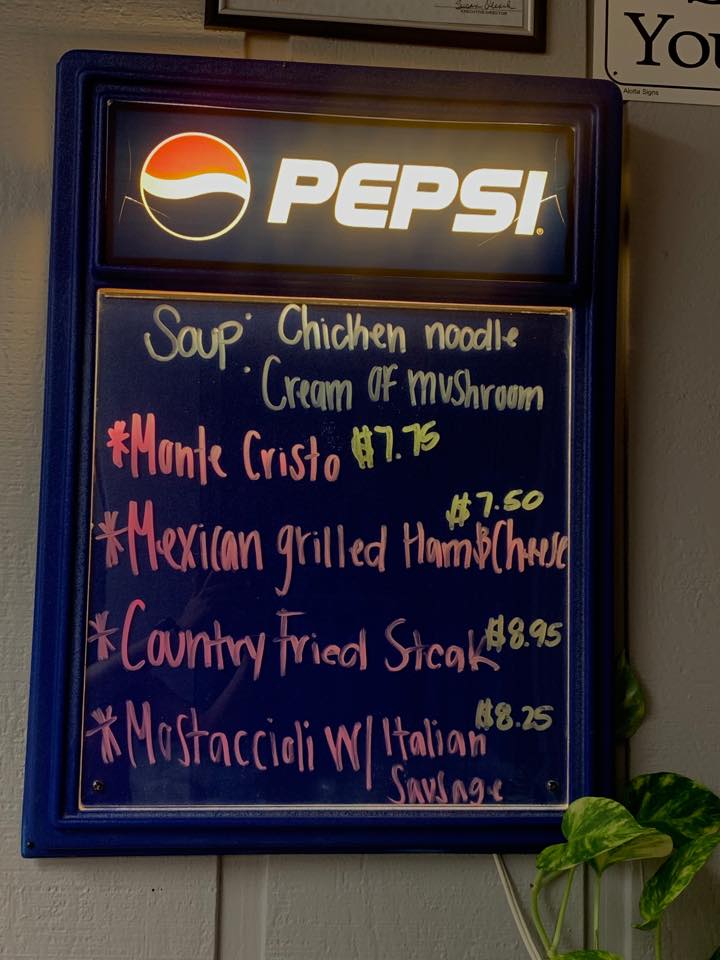 EXECUTIVE DIRECTOR
You
Alotta Signs
PEPSI
Soup: Chicken noodle
Cream OF mushroom
*Monte Cristo $7.75
$7.50
*Mexican grilled Ham & Cheese
*Country Fried Steak $8.95
*Mostaccioli W/ Italian $8.25
Sausage